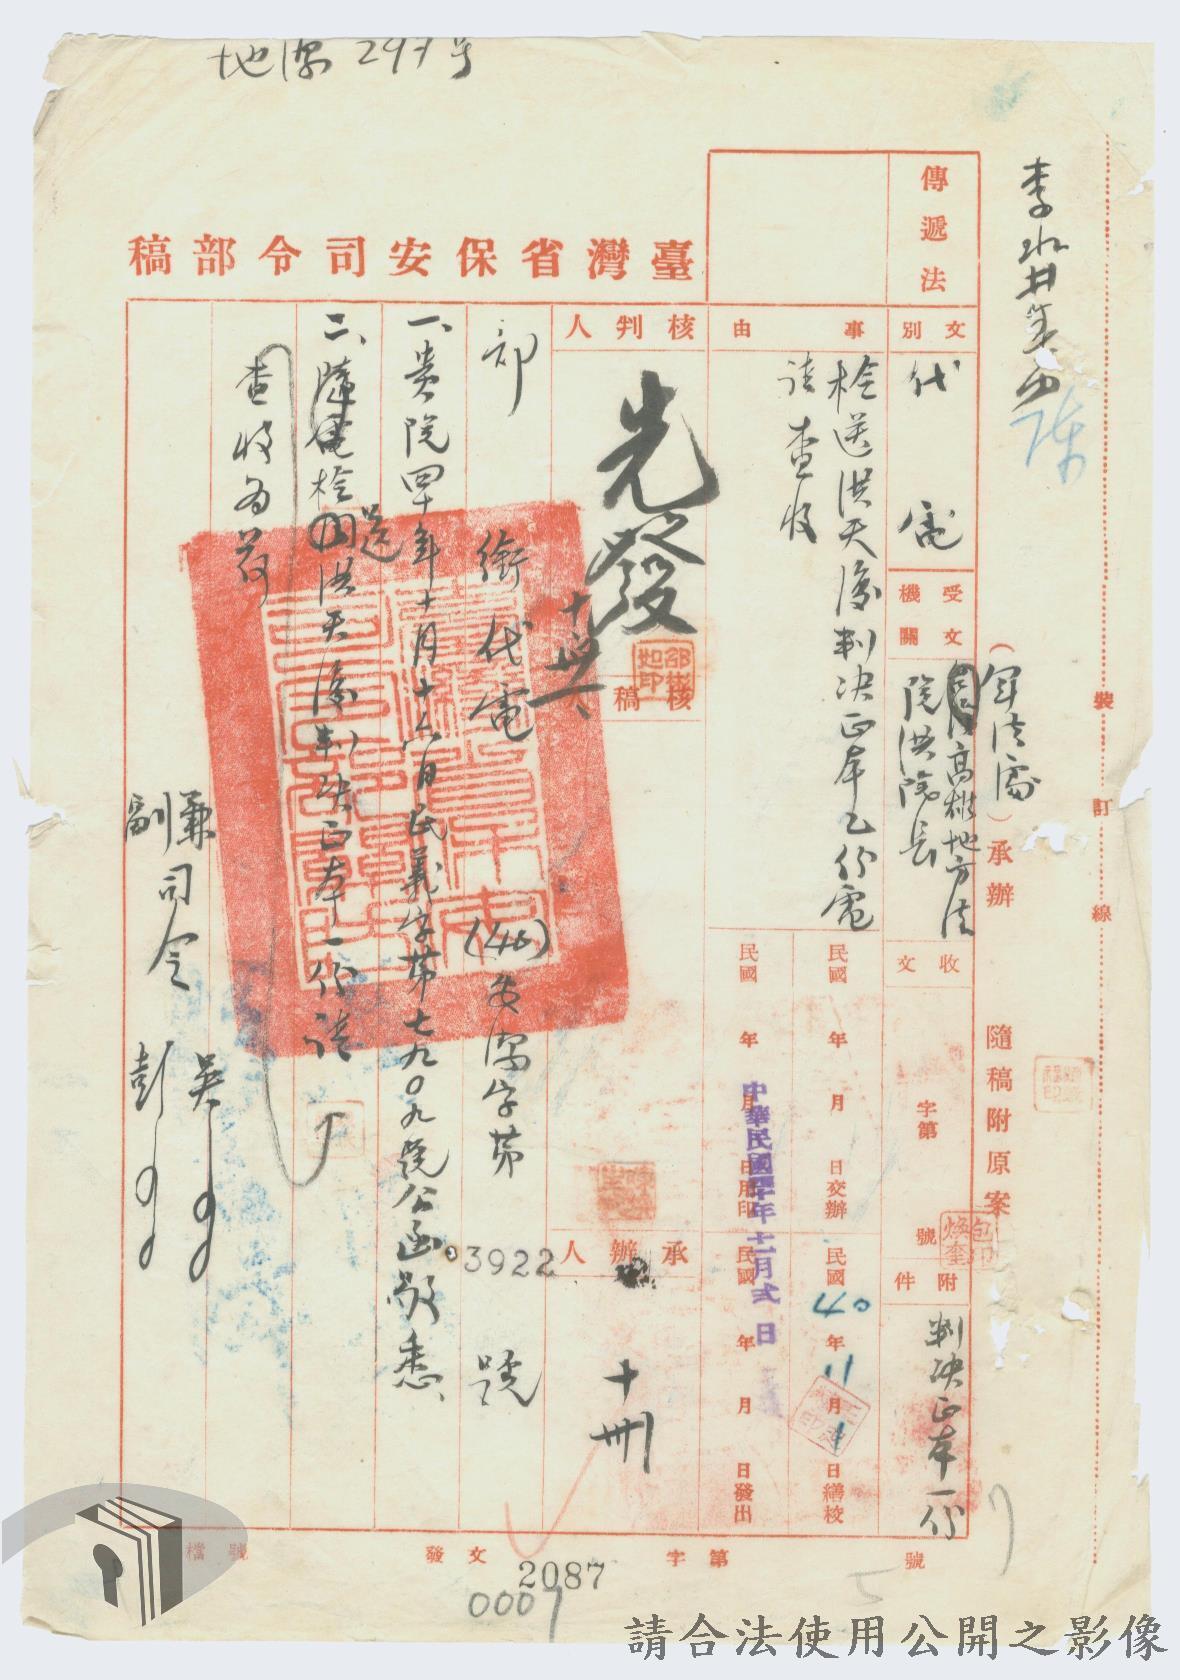 李水井等
(軍法處)承辦
隨稿附原案
裝訂線
傳遞法
文別
代電
受文機關
高雄地方法
院洪院長
收文
字第
號
附件
判決正本一份
事由
檢送洪天復判決正本乙份電
請查收
民國 年 月 日交辦
民國40年11月1日繕校
民國 年 月 日用印
民國 年 月 日發出
中華民國四十年十一月弍日
臺灣省保安司令部稿
核判人
先發
核稿
承辦人
十 卅
部銜代電
(40)安潔字第
3922
號
一、貴院四十年十月十六日民義字第七九〇九號公函敬悉、
二、隨電檢送洪天復判決正本一份請
查收為荷
兼司令 吳
副司令 彭
檔號
發文
字第
號
2087
0007
請合法使用公開之影像